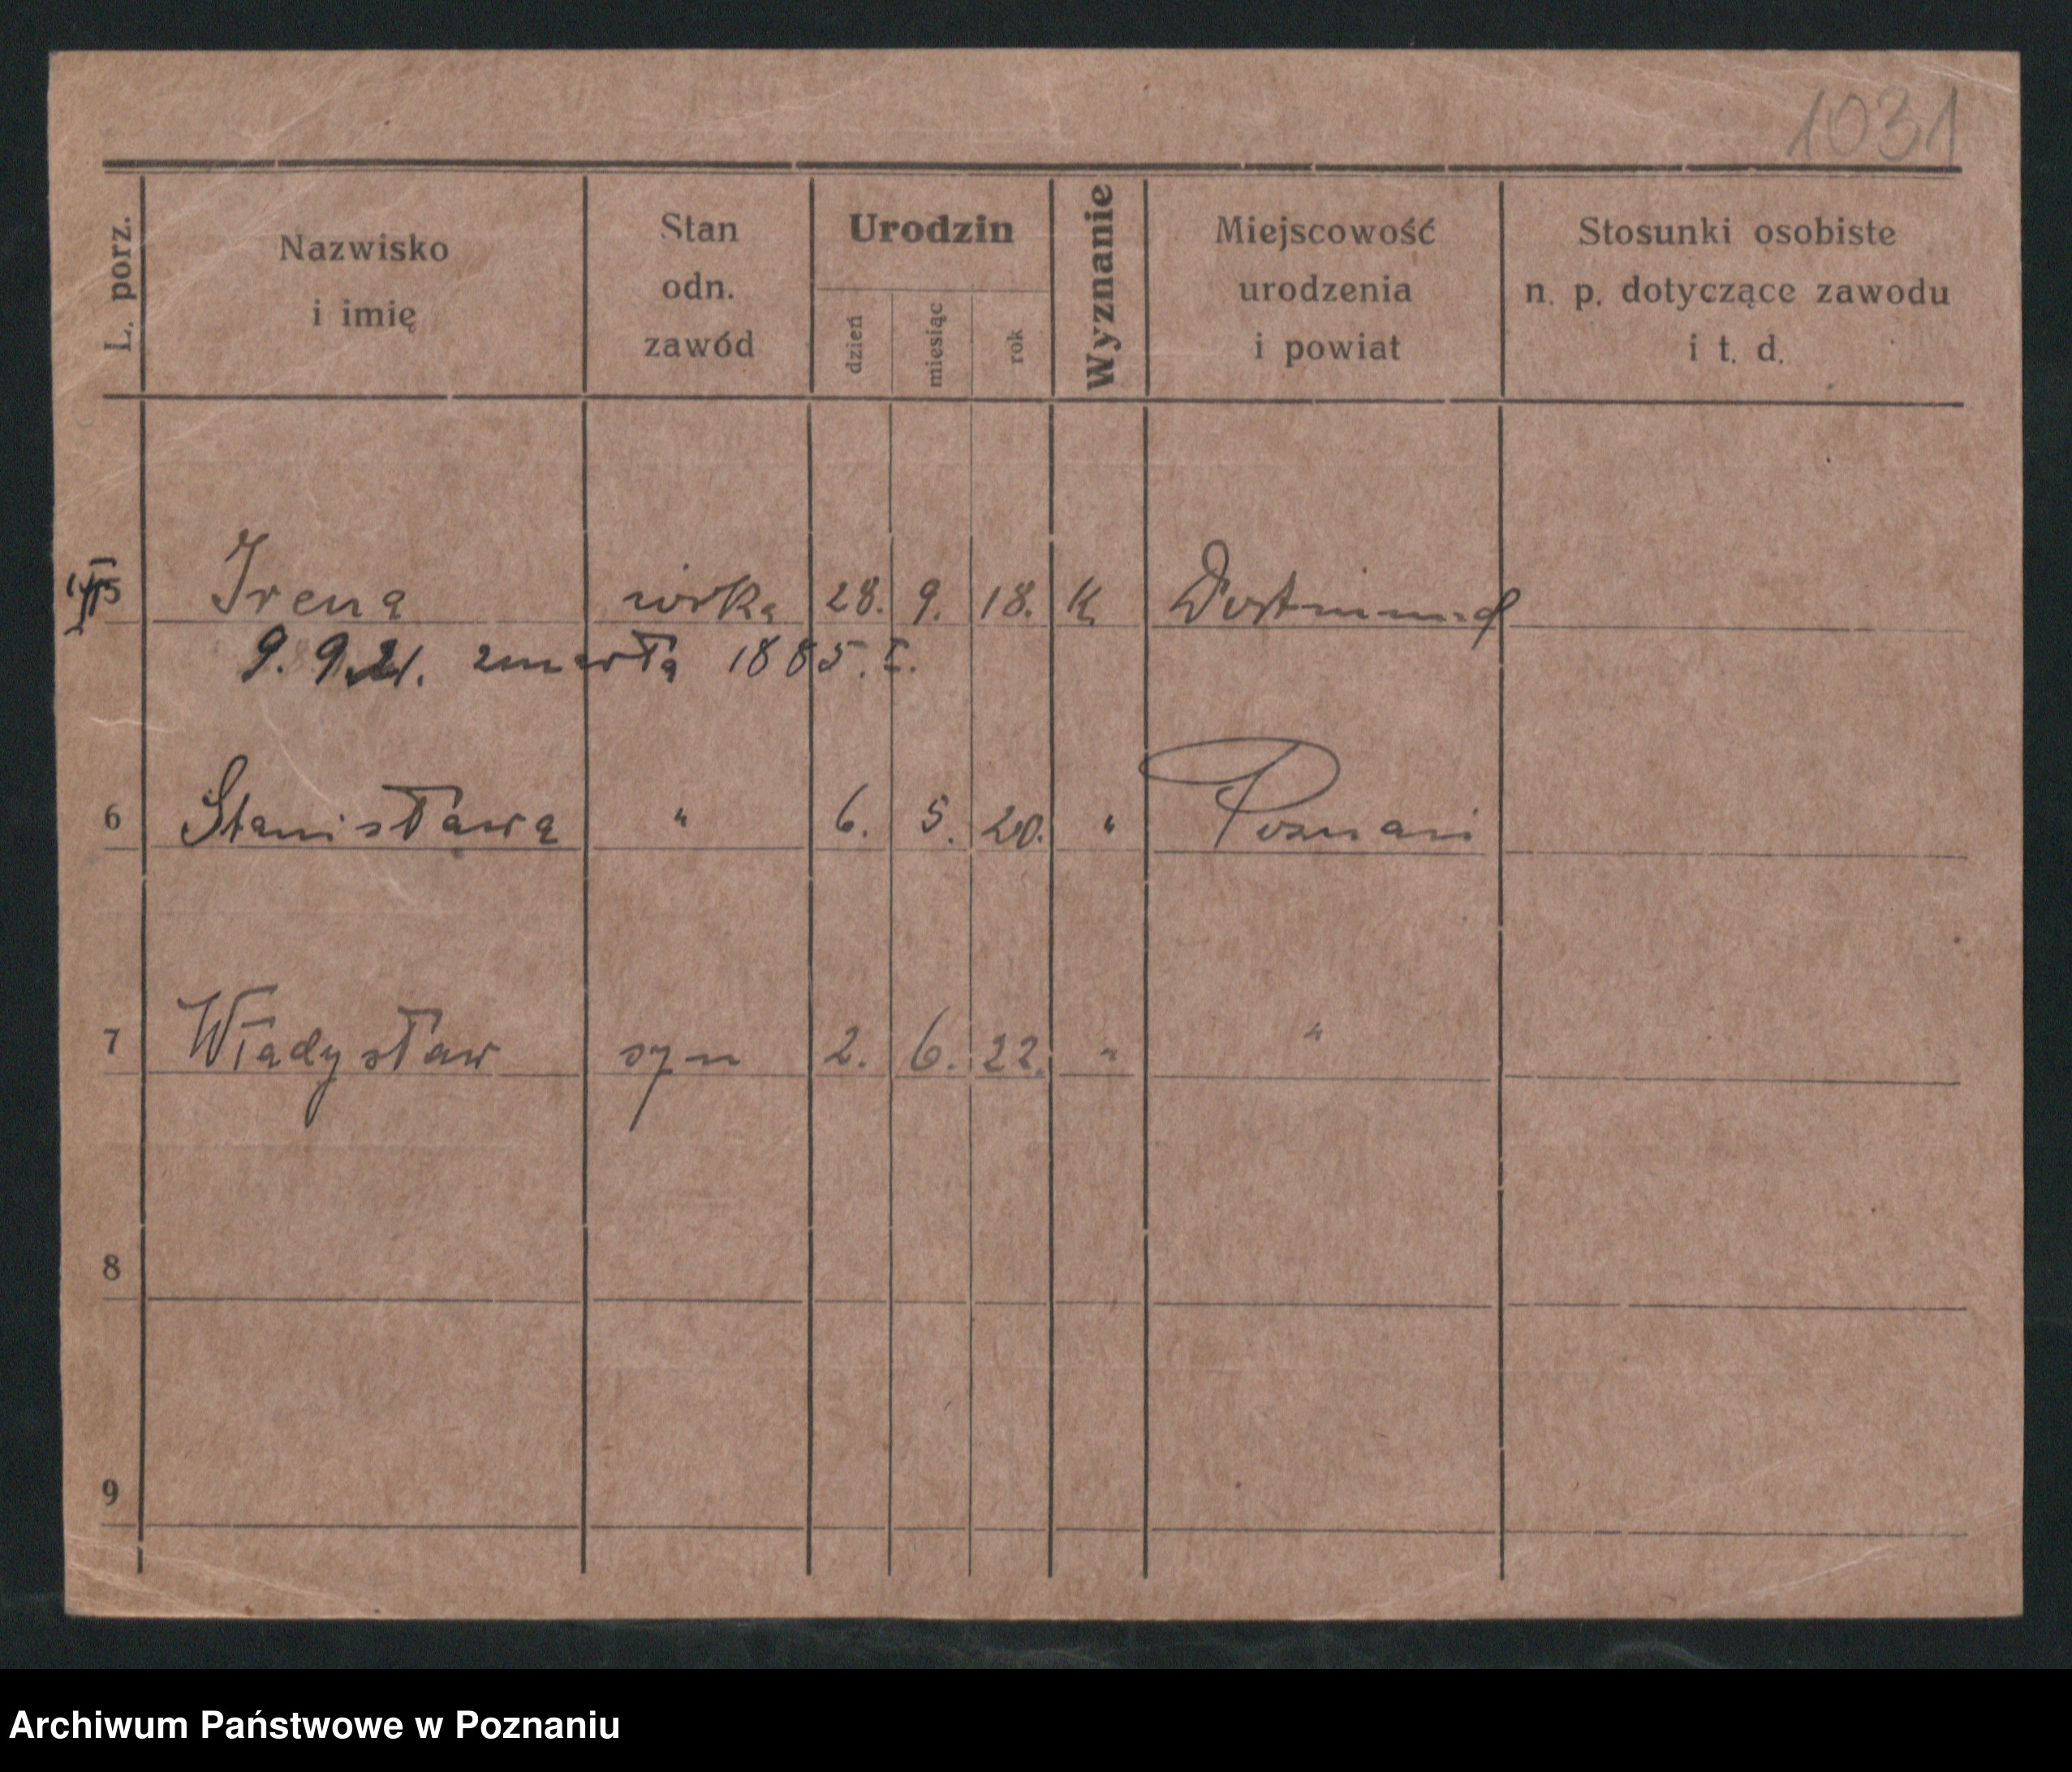 1031
L. porz.
Nazwisko
i imię
Stan
odn.
zawód
Urodzin
dzień
miesiąc
rok
Wyznanie
Miejscowość
urodzenia
i powiat
Stosunki osobiste
n. p. dotyczące zawodu
i t. d.
5 Irena córka 28. 9. 18. K Dortmund
9.9.21. zmarła 1885.I.
6 Stanisława " 6. 5. 20. " Poznań
7 Władysław syn 2. 6. 22. " "
8
9
Archiwum Państwowe w Poznaniu